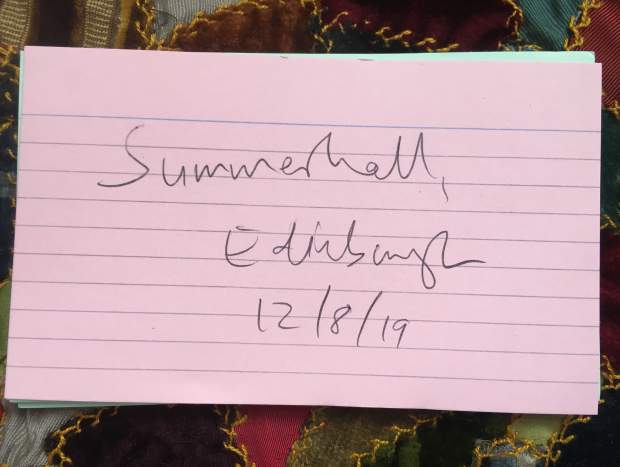 Summerhall,
Edinburgh
12/8/19